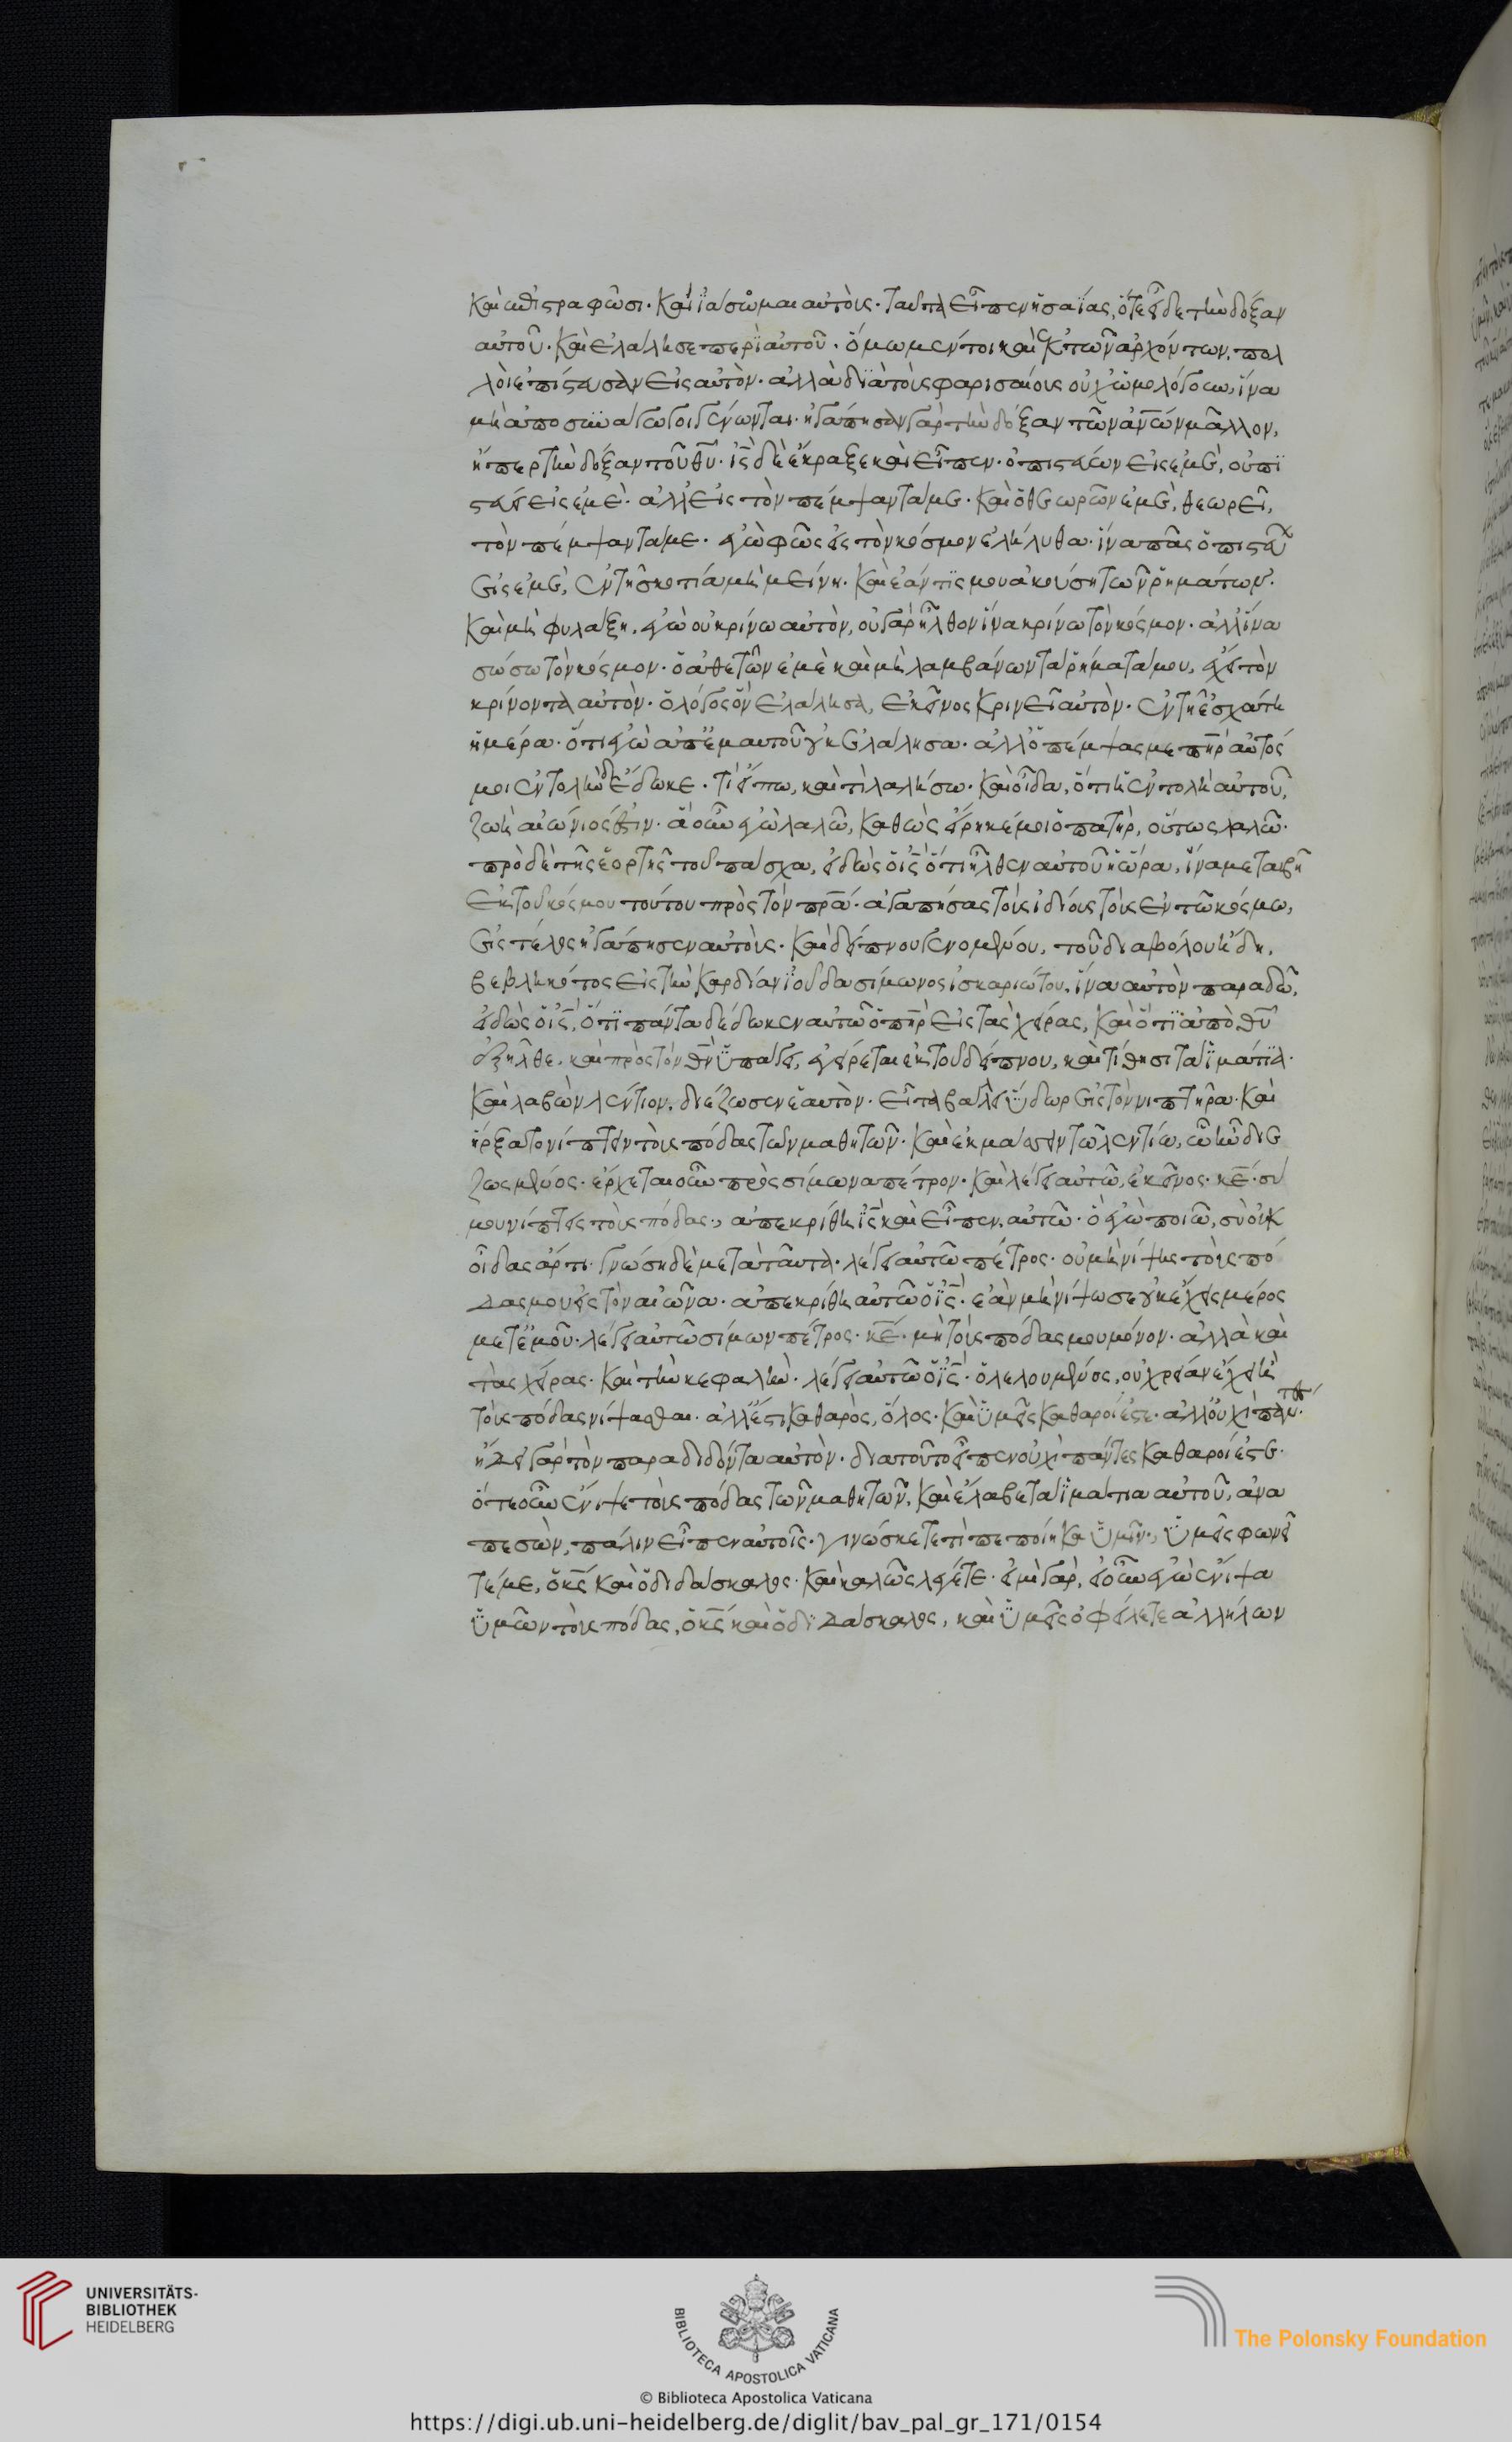 καὶ ἐπιστραφῶσι· καὶ ἰάσωμαι αὐτούς· ταῦτα εἶπεν ἡσαΐας, ὅτε εἶδε τὴν δόξαν
αὐτοῦ· καὶ ἐλάλησε περὶ αὐτοῦ· ὅμως μέντοι καὶ ἐκ τῶν ἀρχόντων, πολ
λοὶ ἐπίστευσαν εἰς αὐτὸν· ἀλλὰ διὰ τοὺς φαρισαίους οὐχ ὡμολόγουν, ἵνα
μὴ ἀποσυνάγωγοι γένωνται· ἠγάπησαν γὰρ τὴν δόξαν τῶν ἀν̅ων μᾶλλον,
ἤπερ τὴν δόξαν τοῦ θυ̅· ις̅ δὲ ἔκραξε καὶ εἶπεν· ὁ πιστεύων εἰς ἐμὲ, οὐ πι
στεύει εἰς ἐμὲ· ἀλλ' εἰς τὸν πέμψαντά με· καὶ ὁ θεωρῶν ἐμὲ, θεωρεῖ,
τὸν πέμψαντά με· ἐγὼ φῶς εἰς τὸν κόσμον ἐλήλυθα· ἵνα πᾶς ὁ πιστεύων
εἰς ἐμὲ, ἐν τῇ σκοτίᾳ μὴ μείνῃ· καὶ ἐάν τις μου ἀκούσῃ τῶν ῥημάτων·
καὶ μὴ φυλάξῃ, ἐγὼ οὐ κρίνω αὐτὸν, οὐ γὰρ ἦλθον ἵνα κρίνω τὸν κόσμον· ἀλλ' ἵνα
σώσω τὸν κόσμον· ὁ ἀθετῶν ἐμὲ καὶ μὴ λαμβάνων τὰ ῥήματά μου, ἔχει τὸν
κρίνοντα αὐτὸν· ὁ λόγος ὃν ἐλάλησα, ἐκεῖνος κρινεῖ αὐτὸν· ἐν τῇ ἐσχάτη
ἡμέρα· ὅτι ἐγὼ ἀπ' ἐμαυτοῦ οὐκ ἐλάλησα· ἀλλ' ὁ πέμψας με πηρ̅ αὐτός
μοι ἐντολὴν ἔδωκε· τί εἴπω, καὶ τὶ λαλήσω· καὶ οἶδα, ὅτι ἡ ἐντολὴ αὐτοῦ,
ζωὴ αἰώνιός ἐστιν· ἃ οὖν ἐγὼ λαλῶ, καθὼς εἴρηκέ μοι ὁ πατὴρ, οὕτως λαλῶ·
πρὸ δὲ τῆς ἑορτῆς τοῦ πάσχα, εἰδὼς ὁ ις̅ ὅτι ἦλθεν αὐτοῦ ἡ ὥρα, ἵνα μεταβῇ
ἐκ τοῦ κόσμου τούτου πρὸς τὸν πρα̅· ἀγαπήσας τοὺς ἰδίους τοὺς ἐν τῶ κόσμω,
εἰς τέλος ἠγάπησεν αὐτοὺς· καὶ δείπνου γενομένου, τοῦ διαβόλου ἤδη,
βεβληκότος εἰς τὴν καρδίαν ἰούδα σίμωνος ἰσκαριώτου, ἵνα αὐτὸν παραδῶ,
εἰδὼς ὁ ις̅, ὅτι πάντα δέδωκεν αὐτῶ ὁ πηρ̅ εἰς τὰς χεῖρας, καὶ ὅτι ἀπὸ θυ̅
ἐξῆλθε, καὶ πρὸς τὸν θν̅ ὑπάγει, ἐγείρεται ἐκ τοῦ δείπνου, καὶ τίθησι τὰ ἱμάτια·
καὶ λαβὼν λέντιον, διέζωσεν ἑαυτὸν· εἶτα βάλλει ὕδωρ εἰς τὸν νιπτῆρα· καὶ
ἤρξατο νίπτειν τοὺς πόδας τῶν μαθητῶν· καὶ ἐκμάσσειν τῶ λεντίω, ὧ ἦν διε
ζωσμένος· ἔρχεται οὖν πρὸς σίμωνα πέτρον· καὶ λέγει αὐτῶ, ἐκεῖνος· κε̅· σύ
μου νίπτεις τοὺς πόδας; ἀπεκρίθη ις̅ καὶ εἶπεν αὐτῶ· ὃ ἐγὼ ποιῶ, σὺ οὐκ
οἶδας ἄρτι· γνώση δὲ μετὰ ταῦτα· λέγει αὐτῶ πέτρος· οὐ μὴ νίψης τοὺς πό
δας μου εἰς τὸν αἰῶνα· ἀπεκρίθη αὐτῶ ὁ ις̅· ἐὰν μὴ νίψω σε οὐκ ἔχεις μέρος
μετ' ἐμοῦ· λέγει αὐτῶ σίμων πέτρος· κε̅· μὴ τοὺς πόδας μου μόνον· ἀλλὰ καὶ
τὰς χεῖρας· καὶ τὴν κεφαλὴν· λέγει αὐτῶ ὁ ις̅· ὁ λελουμένος, οὐ χρείαν ἔχει ἢ
τοὺς πόδας νίψασθαι· ἀλλ' ἔστι καθαρὸς, ὅλος· καὶ ὑμεῖς καθαροί ἐστε· ἀλλ' οὐχὶ πάντες·
ἤδει γὰρ τὸν παραδιδόντα αὐτὸν· διατοῦτο εἶπεν οὐχὶ πάντες καθαροί ἐστε·
ὅτε οὖν ἔνιψε τοὺς πόδας τῶν μαθητῶν, καὶ ἔλαβε τὰ ἱμάτια αὐτοῦ, ἀνα
πεσὼν, πάλιν εἶπεν αὐτοῖς· γινώσκετε τὶ πεποίηκα ὑμῖν; ὑμεῖς φωνεῖ
τέ με, ὁ κς̅ καὶ ὁ διδάσκαλος· καὶ καλῶς λέγετε· εἰμὶ γάρ, εἰ οὖν ἐγὼ ἔνιψα
ὑμῶν τοὺς πόδας, ὁ κς̅ καὶ ὁ διδάσκαλος, καὶ ὑμεῖς ὀφείλετε ἀλλήλων
UNIVERSITÄTS-
BIBLIOTHEK
HEIDELBERG
BIBLIOTECA APOSTOLICA VATICANA
The Polonsky Foundation
© Biblioteca Apostolica Vaticana
https://digi.ub.uni-heidelberg.de/diglit/bav_pal_gr_171/0154